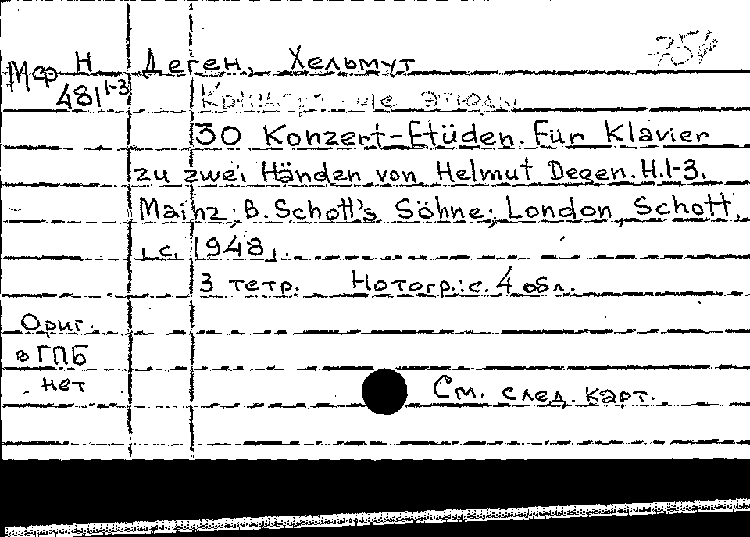 Мф Н Деген, Хельмут
481 1-3
этюды
30 Konzert-Etüden. Für Klavier
zu zwei Händen von Helmut Degen. H.1-3.
Mainz; B. Schott's Söhne; London, Schott,
, c. 1948,.
3 тетр. Нотогр.: с. 4 обл.
Ориг.
в ГПБ
нет
См. след. карт.